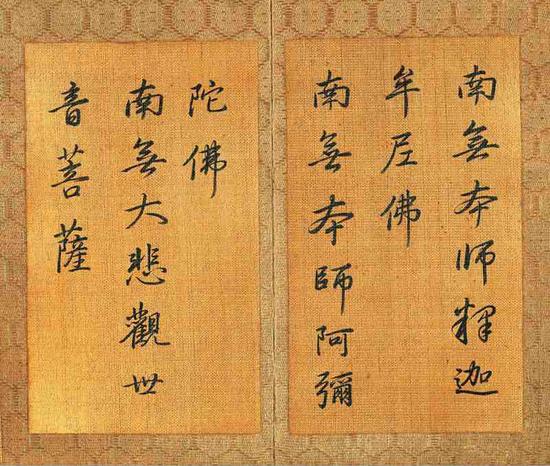 南無本师釋迦
牟尼佛
南無本師阿彌
陀佛
南無大悲觀世
音菩薩